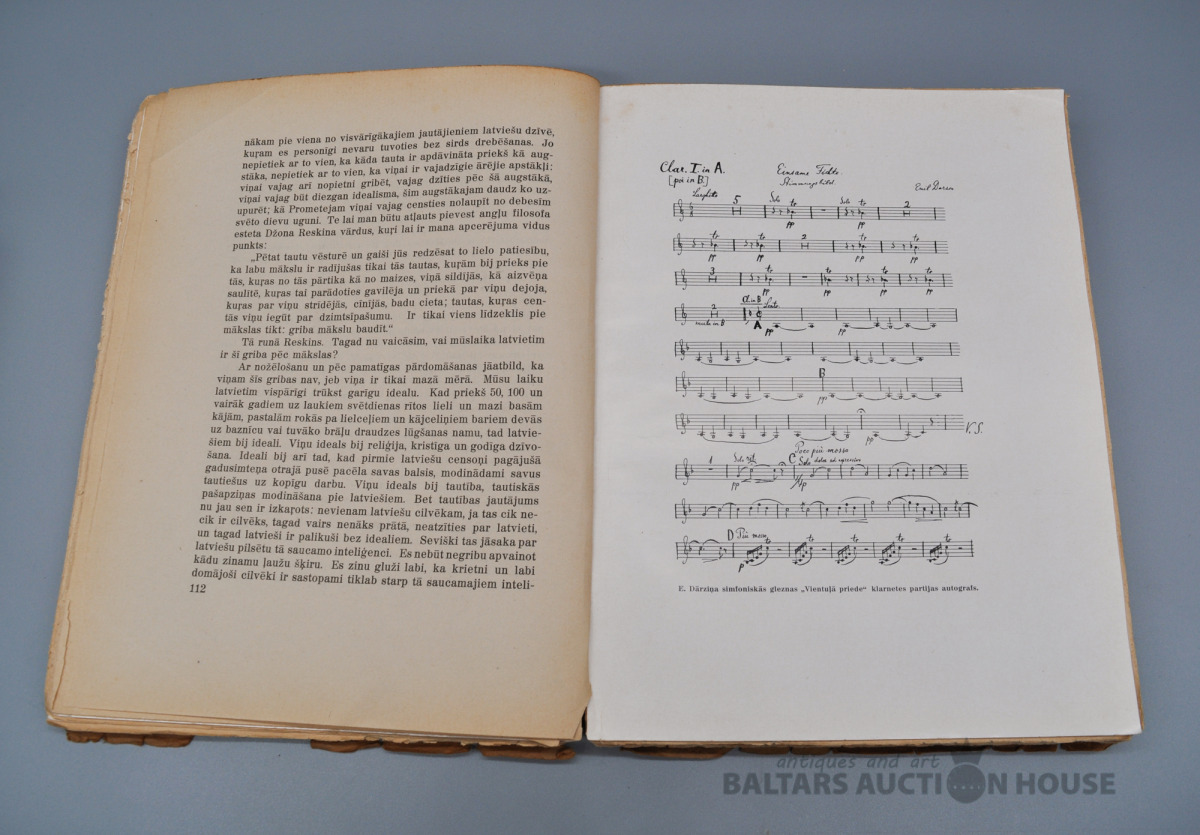 nākam pie viena no visvārīgākajiem jautājieniem latviešu dzīvē,
kuŗam es personīgi nevaru tuvoties bez sirds drebēšanas. Jo
nepietiek ar to vien, ka kāda tauta ir apdāvināta priekš kā aug-
stāka, nepietiek ar to vien, ka viņai ir vajadzīgie ārējie apstākļi;
viņai vajag arī nopietni gribēt, vajag dzīties pēc šā augstākā,
viņai vajag būt diezgan idealisma, šim augstākajam daudz ko uz-
upurēt; kā Prometejam viņai vajag censties nolaupīt no debesīm
svēto dievu uguni. Te lai man būtu atļauts pievest angļu filosofa
esteta Džona Reskina vārdus, kuŗi lai ir mana apcerējuma vidus
punkts:
„Pētat tautu vēsturē un gaiši jūs redzēsat to lielo patiesību,
ka labu mākslu ir radījušas tikai tās tautas, kuŗām bij prieks pie
tās, kuŗas no tās pārtika kā no maizes, viņā sildījās, kā aizvēņa
saulītē, kuŗas tai parādoties gavilēja un priekā par viņu dejoja,
kuŗas par viņu strīdējās, cīnījās, badu cieta; tautas, kuŗas cen-
tās viņu iegūt par dzimtsīpašumu. Ir tikai viens līdzeklis pie
mākslas tikt: griba mākslu baudīt.“
Tā runā Reskins. Tagad nu vaicāsim, vai mūslaika latvietim
ir šī griba pēc mākslas?
Ar nožēlošanu un pēc pamatīgas pārdomāšanas jāatbild, ka
viņam šīs gribas nav, jeb viņa ir tikai mazā mērā. Mūsu laiku
latvietim vispārīgi trūkst garīgu idealu. Kad priekš 50, 100 un
vairāk gadiem uz laukiem svētdienas rītos lieli un mazi basām
kājām, pastalām rokās pa lielceļiem un kājceliņiem bariem devās
uz baznīcu vai tuvāko brāļu draudzes lūgšanas namu, tad latvie-
šiem bij ideali. Viņu ideals bij reliģija, kristīga un godīga dzīvo-
šana. Ideali bij arī tad, kad pirmie latviešu censoņi pagājušā
gadusimteņa otrajā pusē pacēla savas balsis, modinādami savus
tautiešus uz kopīgu darbu. Viņu ideals bij tautība, tautiskās
pašapziņas modināšana pie latviešiem. Bet tautības jautājums
nu jau sen ir izkaŗots: nevienam latviešu cilvēkam, ja tas cik ne-
cik ir cilvēks, tagad vairs nenāks prātā, neatzīties par latvieti,
un tagad latvieši ir palikuši bez idealiem. Sevišķi tas jāsaka par
latviešu pilsētu tā saucamo inteliģenci. Es nebūt negribu apvainot
kādu zinamu ļaužu šķiru. Es zinu gluži labi, ka krietni un labi
domājoši cilvēki ir sastopami tiklab starp tā saucamajiem inteli-
112
Clar. I. in A.
[poi in B.]
Einsame Fichte.
Emil Darsin
Larghetto
5
Solo
tr
Solo
tr
2
pp
pp
tr
tr
2
tr
tr
pp
pp
pp
3
tr
tr
tr
tr
pp
pp
pp
pp
2
Cl. in B
Lento
muta in B
A
pp
pp
B
ppp
pp
V.S.
Poco più mosso
1
Solo
C Solo dolce ed espressivo
pp
D Più mosso
tr
tr
tr
tr
p
E. Dārziņa simfoniskās gleznas „Vientuļā priede“ klarnetes partijas autografs.
antiques and art
BALTARS AUCTION HOUSE